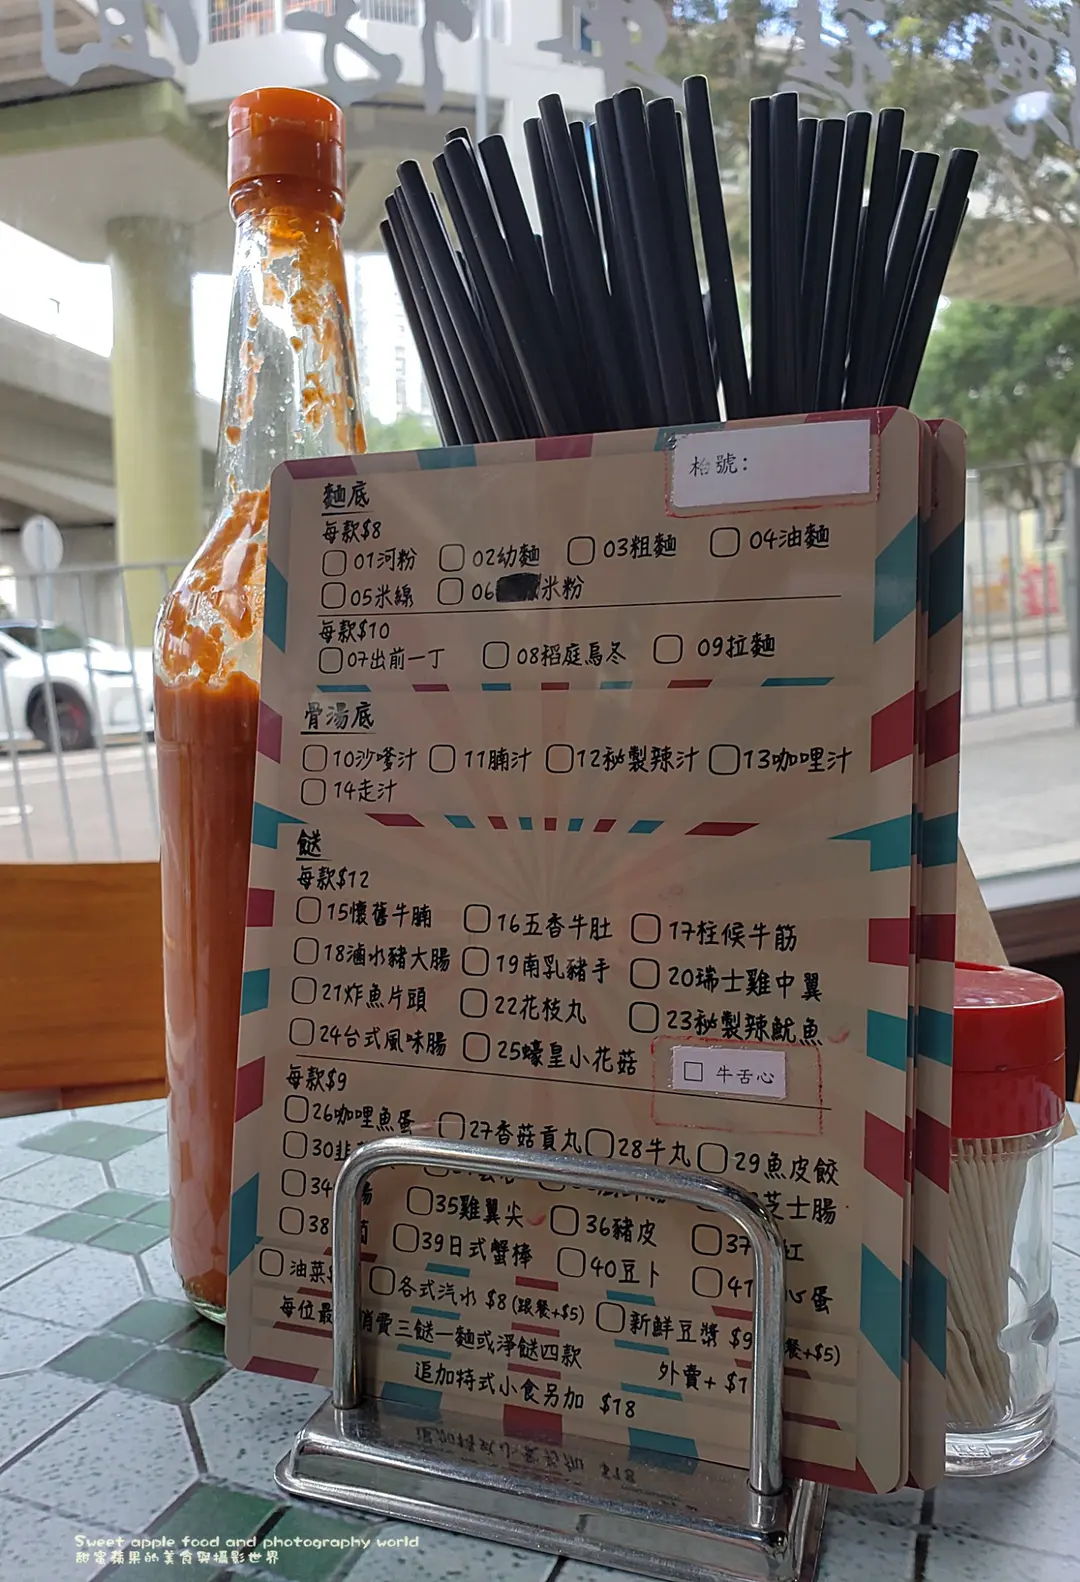 枱號:
麵底
每款$8
01河粉 02幼麵 03粗麵 04油麵
05米線 06 米粉
每款$10
07出前一丁 08稻庭烏冬 09拉麵
骨湯底
10沙嗲汁 11腩汁 12秘製辣汁 13咖哩汁
14走汁
餸
每款$12
15懷舊牛腩 16五香牛肚 17柱候牛筋
18滷水豬大腸 19南乳豬手 20瑞士雞中翼
21炸魚片頭 22花枝丸 23秘製辣魷魚
24台式風味腸 25蠔皇小花菇
牛舌心
每款$9
26咖哩魚蛋 27香菇貢丸 28牛丸 29魚皮餃
30 芝士腸
34 35雞翼尖 36豬皮 37 紅
38 39日式蟹棒 40豆卜 41 心蛋
油菜 各式汽水 $8(跟餐+$5) 新鮮豆漿 $9 餐+$5)
每位最 消費三餸一麵或淨餸四款 外賣+$1
追加特式小食另加 $18
Sweet apple food and photography world
甜蜜蘋果的美食與攝影世界